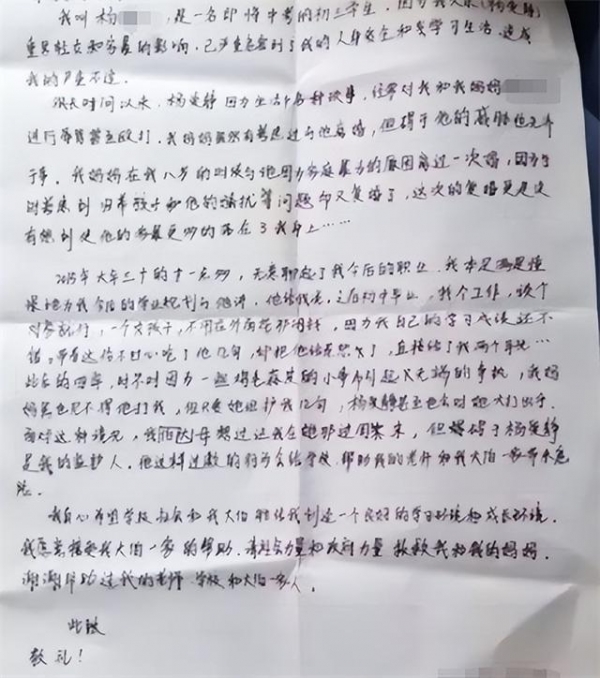 我叫杨 ,是一名即将中考的初三学生.因为我父亲(杨 静)
重男轻女和家暴的影响,已严重危害到了我的人身安全和我学习生活.造成
我的严重不适.
很长时间以来,杨 静因为生活中各种琐事,经常对我和我妈妈
进行 骂甚至殴打.我妈妈虽然有考虑过与他离婚,但碍于他的威胁也无济
于事.我妈妈在我八岁的时候与他因为家庭暴力的原因离过一次婚,因为当
时考虑到 孩子和他的骚扰等问题却又复婚了,这次的复婚更是没
有想到使他的家暴更多的落在了我身上……
年大年三十的十一点多,无意聊起了我今后的职业.我本是满是憧
憬地为我今后的学业规划与他讲.他给我说,之后初中毕业,找个工作,谈个
对象就行,一个女孩子,不用在外面花那闲钱,因为我自己的学习成绩还不
错.带着这份不甘心吃了他几句,却把他给惹怒火了,直接给了我两个耳光…
的四年,时不时因为一些鸡毛蒜皮的小事而引起火无端的争执,我妈
妈虽也见不得他打我,但只要她维护我几句,杨 静甚至也会对她大打出手.
面对这种情况,我 想过让我在她那过周末,但碍于杨 静
是我的监护人.他这种过激的行为会给学校,帮助我的老师和我大伯一家带来危
险.
我真心希望学校社会和我大伯能给我创造一个良好的学习环境和成长环境.
我愿意接受我大伯一家的帮助.请社会力量和政府力量 救救我和我的妈妈.
谢谢帮助过我的老师.学校和大伯一家人.
此致
敬礼!